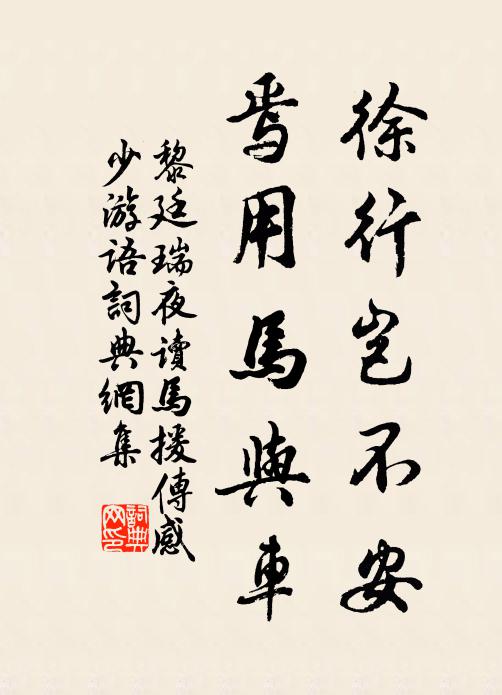 徐行岂不安
焉用馬與車
黎廷瑞夜讀馬援傳感
少游語詞典網集
詞典网印